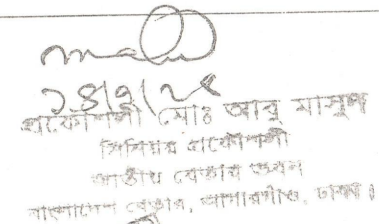 ১৪/৭/২৫
প্রকৌশলী মোঃ আবু মাসুদ
সিনিয়র প্রকৌশলী
জাতীয় বেতার ভবন
বাংলাদেশ বেতার, আগারগাঁও, ঢাকা।